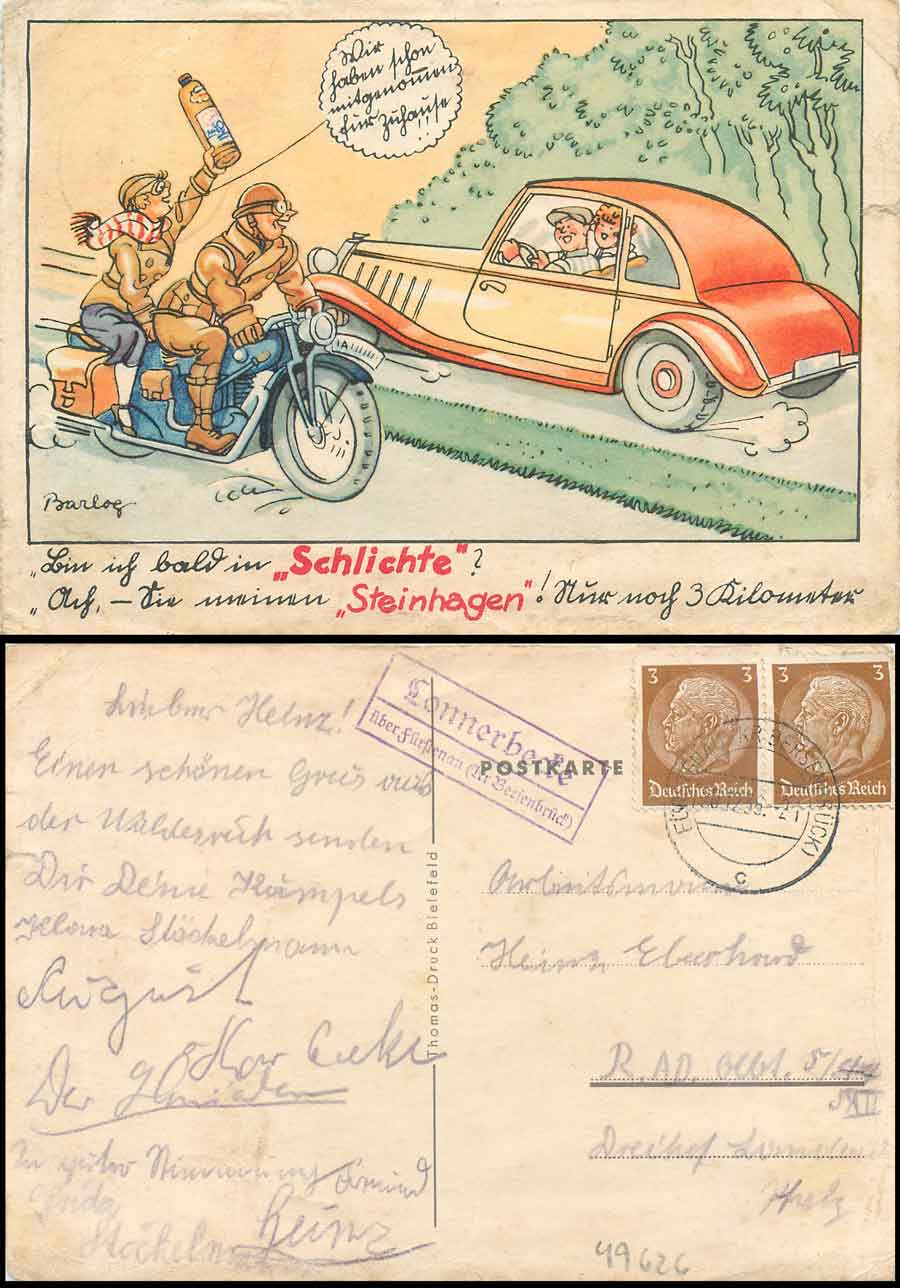 Wir
haben schon
mitgenommen
für zuhause
!!
IA
Barlog
„Bin ich bald in „Schlichte“?
„Ach, – Sie meinen „Steinhagen“! Nur noch 3 Kilometer
Lonnerbecke
über Fürstenau (Kr Bersenbrück)
POSTKARTE
3 3
Deutsches Reich Deutsches Reich
BERSENBRÜCK)
c
Thomas-Druck Bielefeld
Lieber Heinz!
Einen schönen Grus aus
der senden
Dir Deine Kumpels
Stöckelmann
August
Der
In guter Stimmung
Frida
Heinz
Arbeitsmann
Heinz Eberhard
R.AD. 5/
XII
Pfalz
49626